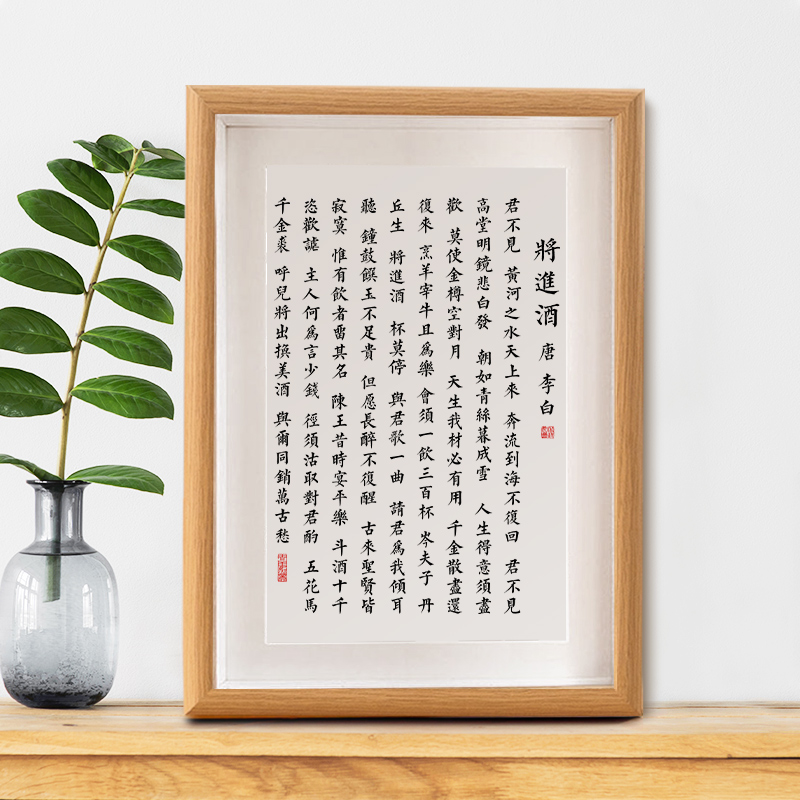 將進酒 唐 李白
君不見 黃河之水天上來 奔流到海不復回 君不見
高堂明鏡悲白發 朝如青絲暮成雪 人生得意須盡
歡 莫使金樽空對月 天生我材必有用 千金散盡還
復來 烹羊宰牛且爲樂 會須一飲三百杯 岑夫子 丹
丘生 將進酒 杯莫停 與君歌一曲 請君爲我傾耳
聽 鐘鼓饌玉不足貴 但愿長醉不復醒 古來聖賢皆
寂寞 惟有飲者畱其名 陳王昔時宴平樂 斗酒十千
恣歡謔 主人何爲言少錢 徑須沽取對君酌 五花馬
千金裘 呼兒將出換美酒 與爾同銷萬古愁